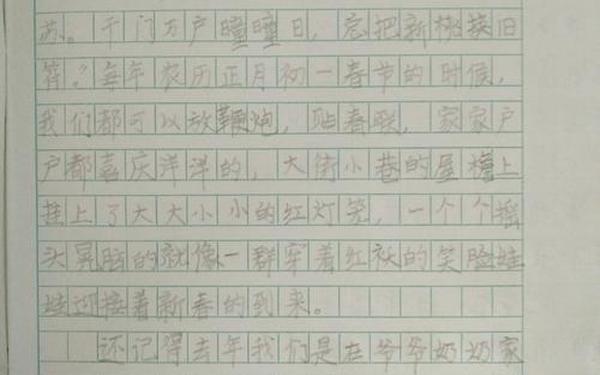 苏。千门万户瞳瞳日，总把新桃换旧
符。”每年农历正月初一春节的时候，
我们都可以放鞭炮，贴春联，家家户
户都喜庆洋洋的，大街小巷的屋檐上
挂上了大大小小的红灯笼，一个个摇
头晃脑的就像一群穿着红袄的笑脸娃
娃迎接着新春的到来。
还记得去年我们是在爷爷奶奶家